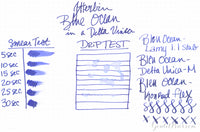 Herbin
Blue Ocean
in a Delta Unica
Smear Test
5 sec
10 sec
15 sec
20 sec
25 sec
30 sec
DRIP TEST
Blue Ocean-
Lamy 1.1 Stub
Blue Ocean-
Delta Unica-M
Blue Ocean-